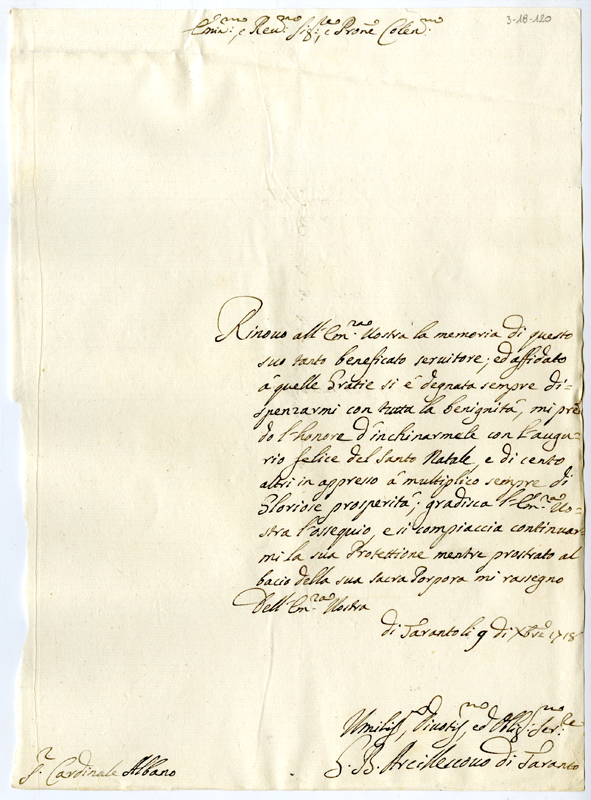 3-18-120
Em.mo e Reu.mo Sig.re, e Prone Colen.mo
Rinouo all'Em.za Uostra la memoria di questo
suo tanto beneficato seruitore; ed affidato
à quelle Gratie si é degnata sempre di=
spenzarmi con tutta la benignità, mi pren
do l'honore d'inchinarmele con l'augu=
rio felice del Santo Natale, e di cento
altri in appresso à multiplico sempre di
Gloriose prosperità; gradisca l'Em.za Uo=
stra l'ossequio, e si compiaccia continuar=
mi la sua Protettione mentre prostrato al
bacio della sua Sacra Porpora mi rassegno
Dell'Em.za Uostra
di Taranto li 9 di Xbre 1718
Umiliss.o Diuotis.mo, ed Oblig.mo Ser.re
G. B. Arciuescouo di Taranto
S.r Cardinale Albano